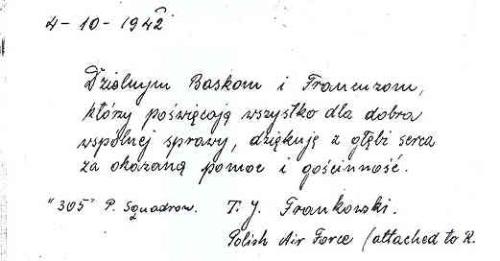 4-10-1942
Dzielnym Baskom i Francuzom,
którzy poświęcają wszystko dla dobra
wspólnej sprawy, dziękuję z głębi serca
za okazaną pomoc i gościnność.
"305" P. Squadron. T. J. Frankowski.
Polish Air Force (attached to R.